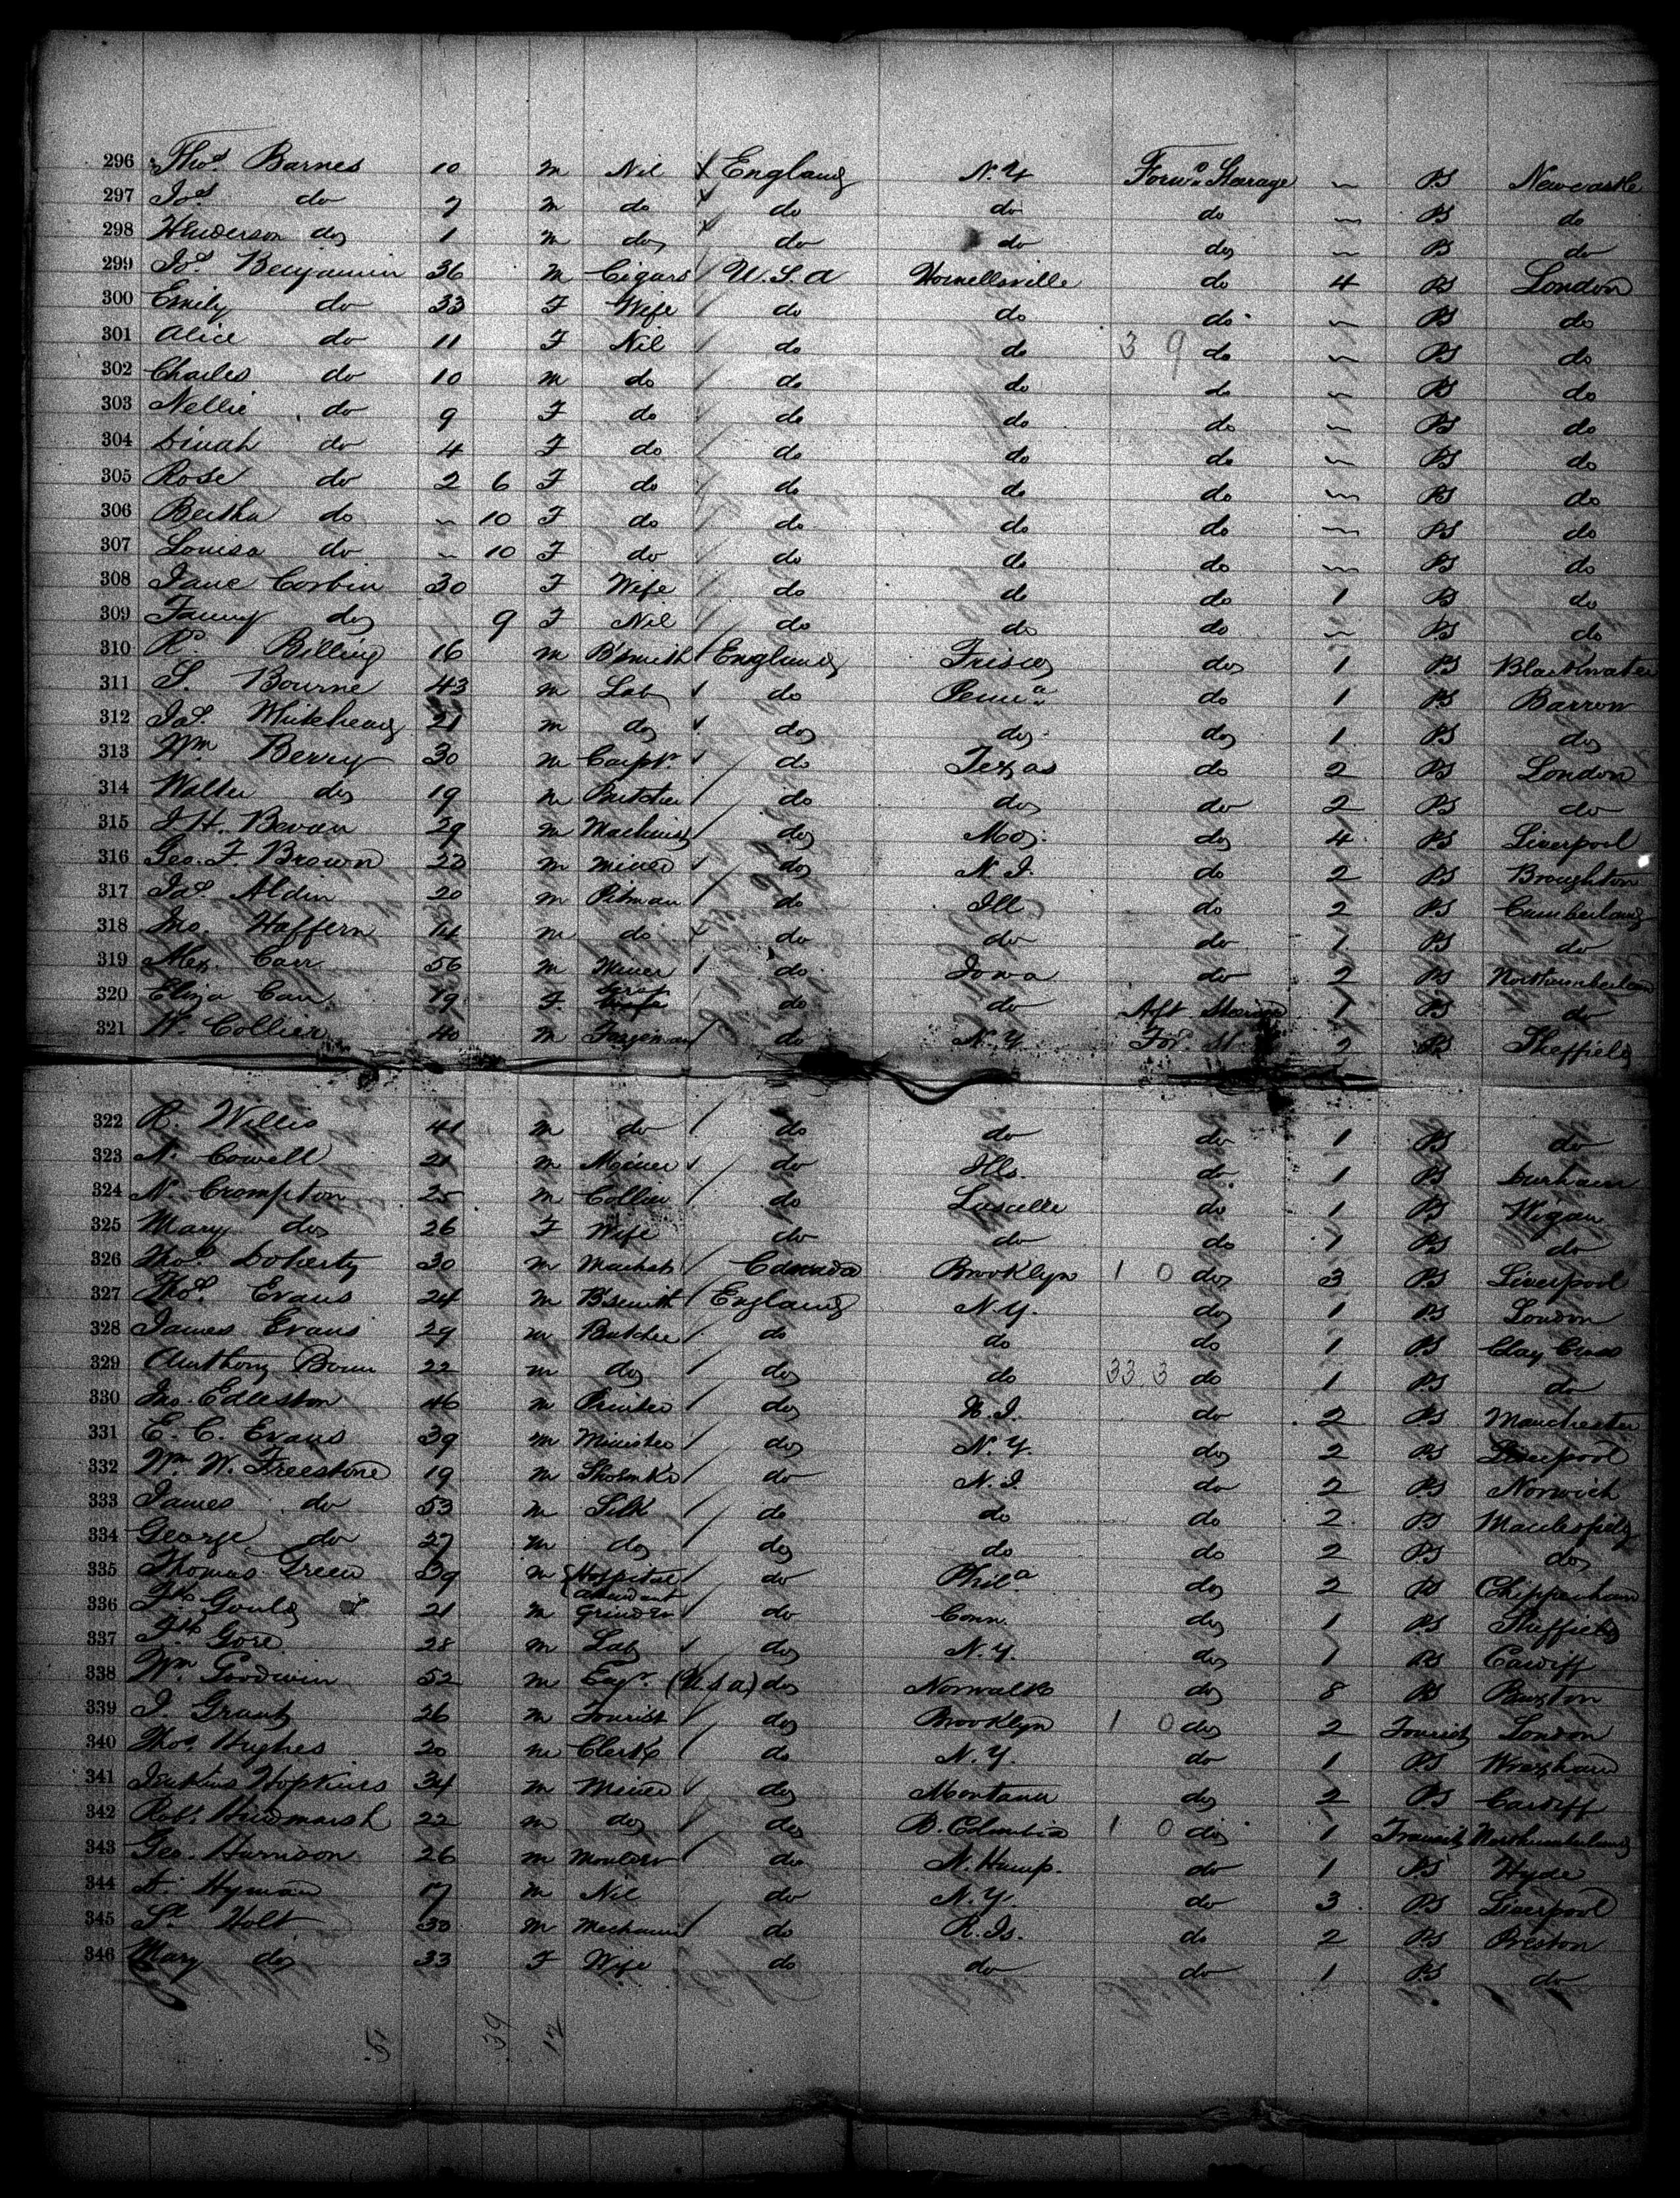 296 Thos. Barnes 10 M Nil England N.Y Forwd Steerage ~ PS Newcastle
297 Jos. do 7 M do do do do ~ PS do
298 Henderson do 1 M do do do do ~ PS do
299 Jos. Benjamin 36 M Cigars U.S.A Hornellsville do 4 PS London
300 Emily do 33 F Wife do do do ~ PS do
301 Alice do 11 F Nil do do 3 9 do ~ PS do
302 Charles do 10 M do do do do ~ PS do
303 Nellie do 9 F do do do do ~ PS do
304 Dinah do 4 F do do do do ~ PS do
305 Rose do 2 6 F do do do do ~ PS do
306 Bertha do ~ 10 F do do do do ~ PS do
307 Louisa do ~ 10 F do do do do ~ PS do
308 Jane Corbin 30 F Wife do do do 1 PS do
309 Fanny do 9 F Nil do do do ~ PS do
310 Rd. Billing 16 M B'smith England Frisco do 1 PS Blackwater
311 S. Bourne 43 M Lab do Penna. do 1 PS Barrow
312 Jas. Whitehead 21 M do do do do 1 PS do
313 Wm Berry 30 M Carptr do Texas do 2 PS London
314 Walter do 19 M Butcher do do do 2 PS do
315 J H. Bevan 29 M Machinist do Mo. do 4 PS Liverpool
316 Geo. F. Brown 23 M Miner do N.J. do 2 PS Broughton
317 Jas. Aldin 20 M Pitman do Ill do 2 PS Cumberland
318 Jno. Haffern 14 M do do do do 1 PS do
319 Alex. Carr 56 M Miner do Iowa do 2 PS Northumberland
320 Eliza Carr 19 F do do Aft Steerage 1 PS do
321 H. Collier 40 M Forgeman do N.Y For. St. 2 PS Sheffield
322 R. Willis 41 M do do do do 1 PS do
323 N. Cowell 21 M Miner do Ills. do 1 PS Durham
324 N. Crompton 25 M Collier do do 1 PS Wigan
325 Mary do 26 F Wife do do do 1 PS do
326 Thos. Doherty 30 M Canada Brooklyn 1 0 do 3 PS Liverpool
327 Thos. Evans 24 M B'smith England N.Y. do 1 PS London
328 James Evans 29 M Butcher do do do 1 PS Clay Cross
329 Anthony 22 M do do do 33 3 do 1 PS do
330 Jno. Edleston 46 M Printer do R.I. do 2 PS Manchester
331 E. C. Evans 39 M Minister do N.Y. do 2 PS Liverpool
332 Wm W. Freestone 19 M do N.J. do 2 PS Norwich
333 James do 53 M Silk do do do 2 PS Macclesfield
334 George do 27 M do do do do 2 PS do
335 Thomas Green 39 M Hospital attendant do Phila do 2 PS Chippenham
336 Gould 21 M Grinder do Conn. do 1 PS Sheffield
337 Gore 28 M Lab do N.Y. do 1 PS Cardiff
338 Wm Goodwin 52 M Engr. (U.S.A) do Norwalk do 8 PS Buxton
339 J. Grant 26 M Tourist do Brooklyn 1 0 do 2 Tourist London
340 Thos. Hughes 20 M Clerk do N.Y. do 1 PS Wrexham
341 Jenkins Hopkins 34 M Miner do Montana do 2 PS Cardiff
342 Robt. Hindmarsh 22 M do do B. Columbia 1 0 do 1 Transit Northumberland
343 Geo. Harrison 26 M Moulder do N. Hamp. do 1 PS Hyde
344 Hyman 17 M Nil do N.Y. do 3 PS Liverpool
345 Sl. Holt 30 M Mechanic do R. Is. do 2 PS Preston
346 Mary do 33 F Wife do do do 1 PS do
51 39 12